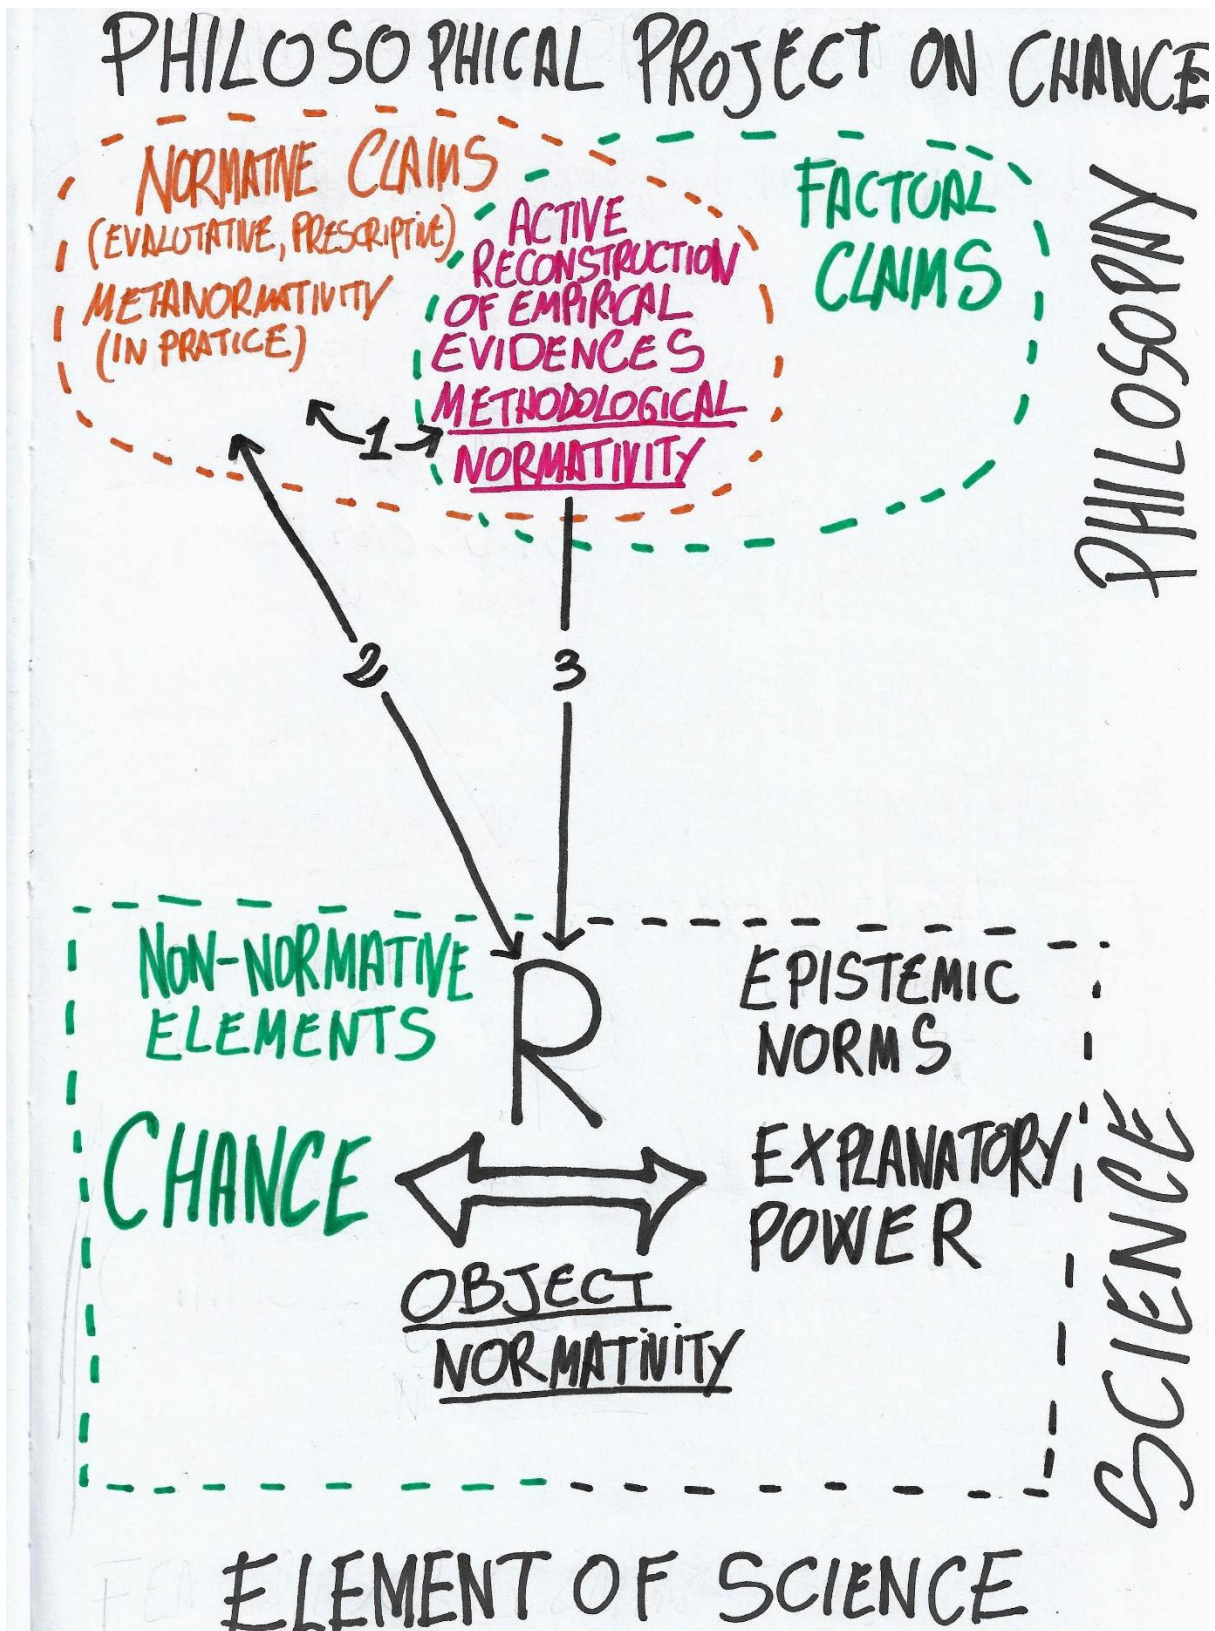 PHILOSOPHICAL PROJECT ON CHANCE
NORMATIVE CLAIMS
(EVALUTATIVE, PRESCRIPTIVE)
METANORMATIVITY
(IN PRATICE)
ACTIVE
RECONSTRUCTION
OF EMPIRICAL
EVIDENCES
METHODOLOGICAL
NORMATIVITY
FACTUAL
CLAIMS
PHILOSOPHY
1
2
3
NON-NORMATIVE
ELEMENTS
CHANCE
R
EPISTEMIC
NORMS
EXPLANATORY
POWER
OBJECT
NORMATIVITY
SCIENCE
ELEMENT OF SCIENCE